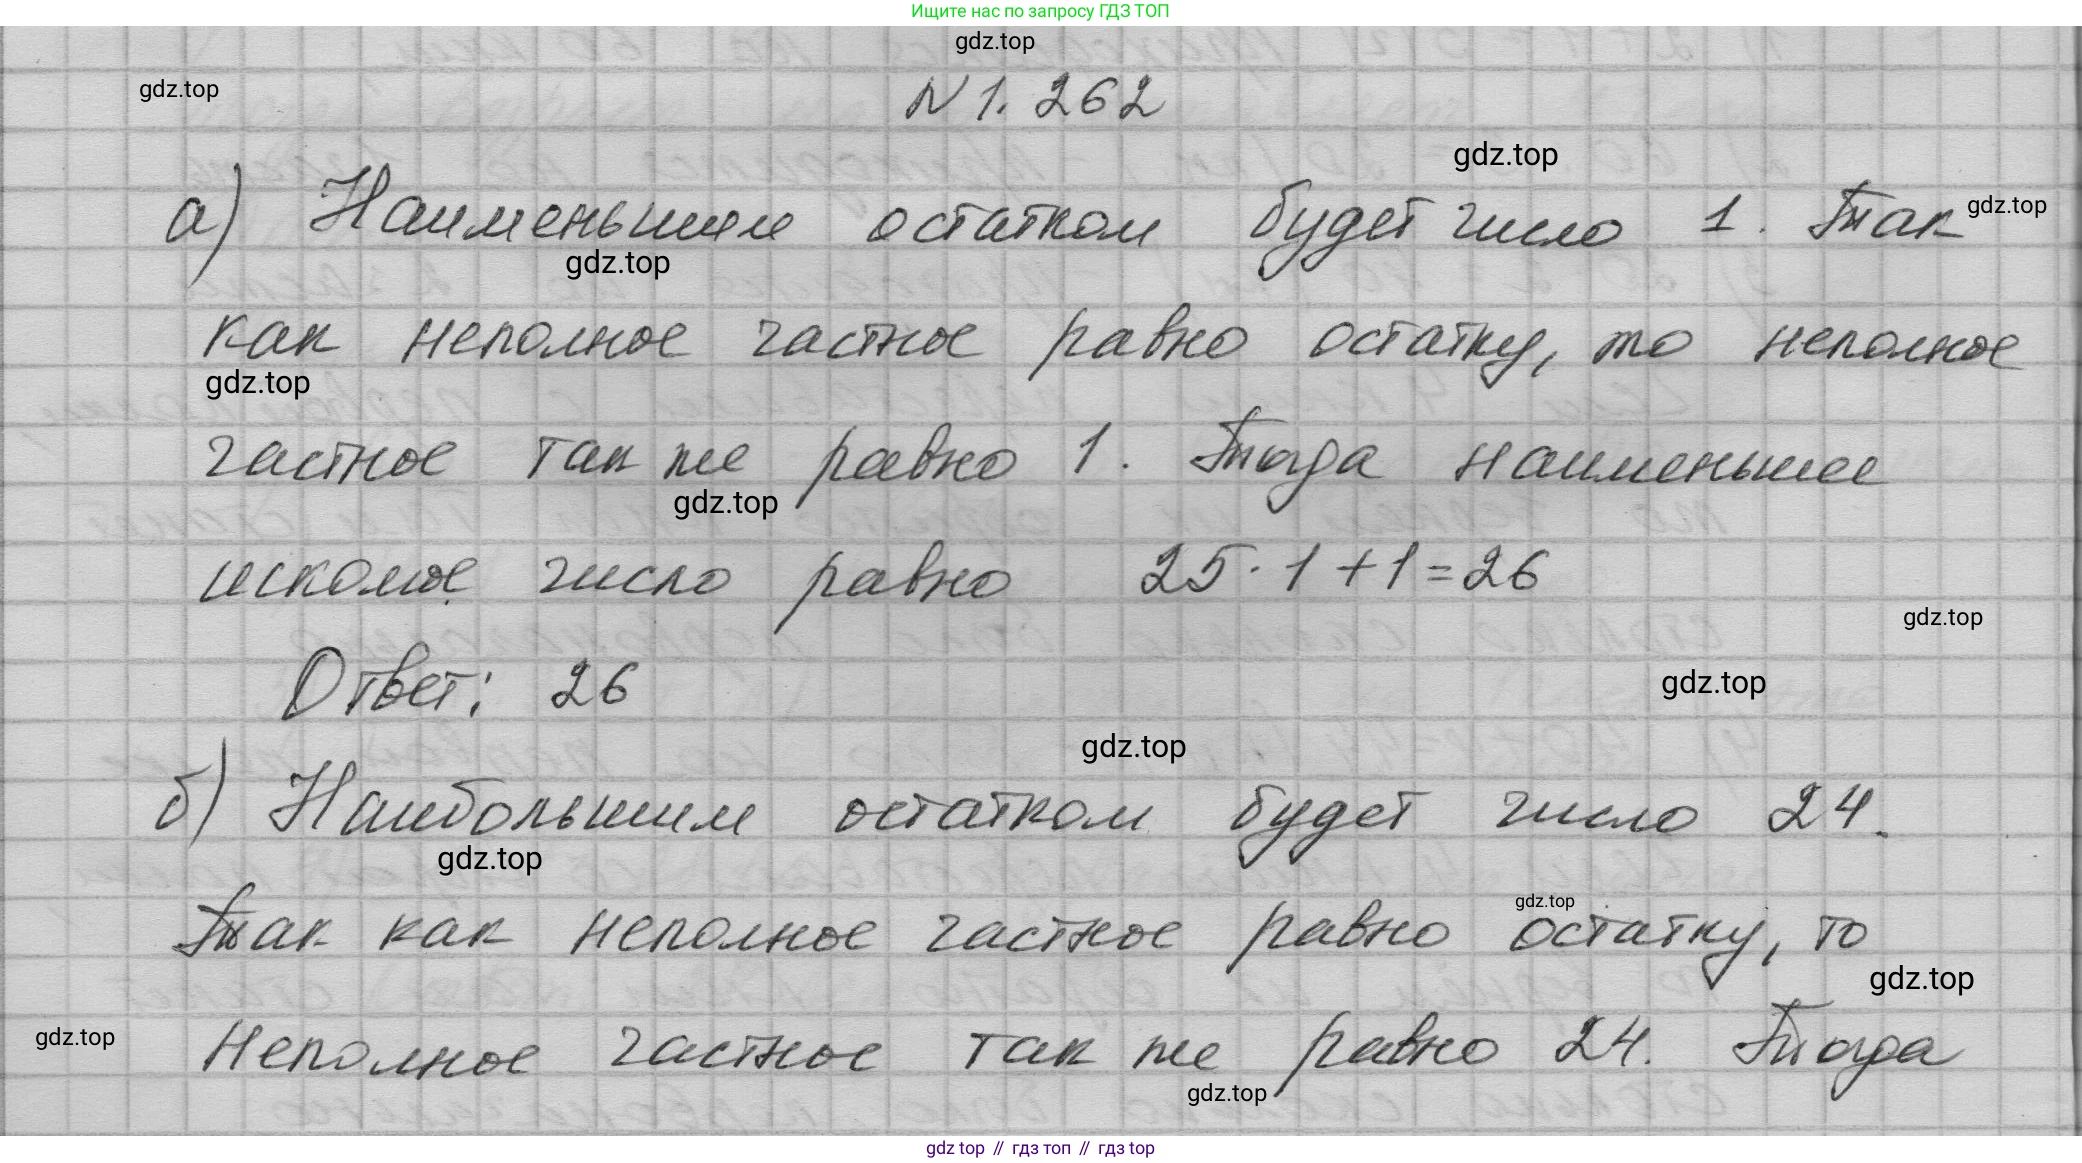 Ищите нас по запросу ГДЗ ТОП
gdz.top
gdz.top
N 1. 262
gdz.top
а) Наименьшим остатком будет число 1. Так
gdz.top
gdz.top
как неполное частное равно остатку, то неполное
gdz.top
частное так же равно 1. Тогда наименьшее
gdz.top
искомое число равно 25 · 1 + 1 = 26
gdz.top
Ответ: 26
gdz.top
gdz.top
б) Наибольшим остатком будет число 24.
gdz.top
gdz.top
Так как неполное частное равно остатку, то
gdz.top
gdz.top
Неполное частное так же равно 24. Тогда
gdz.top
gdz top // гдз топ // гдз top